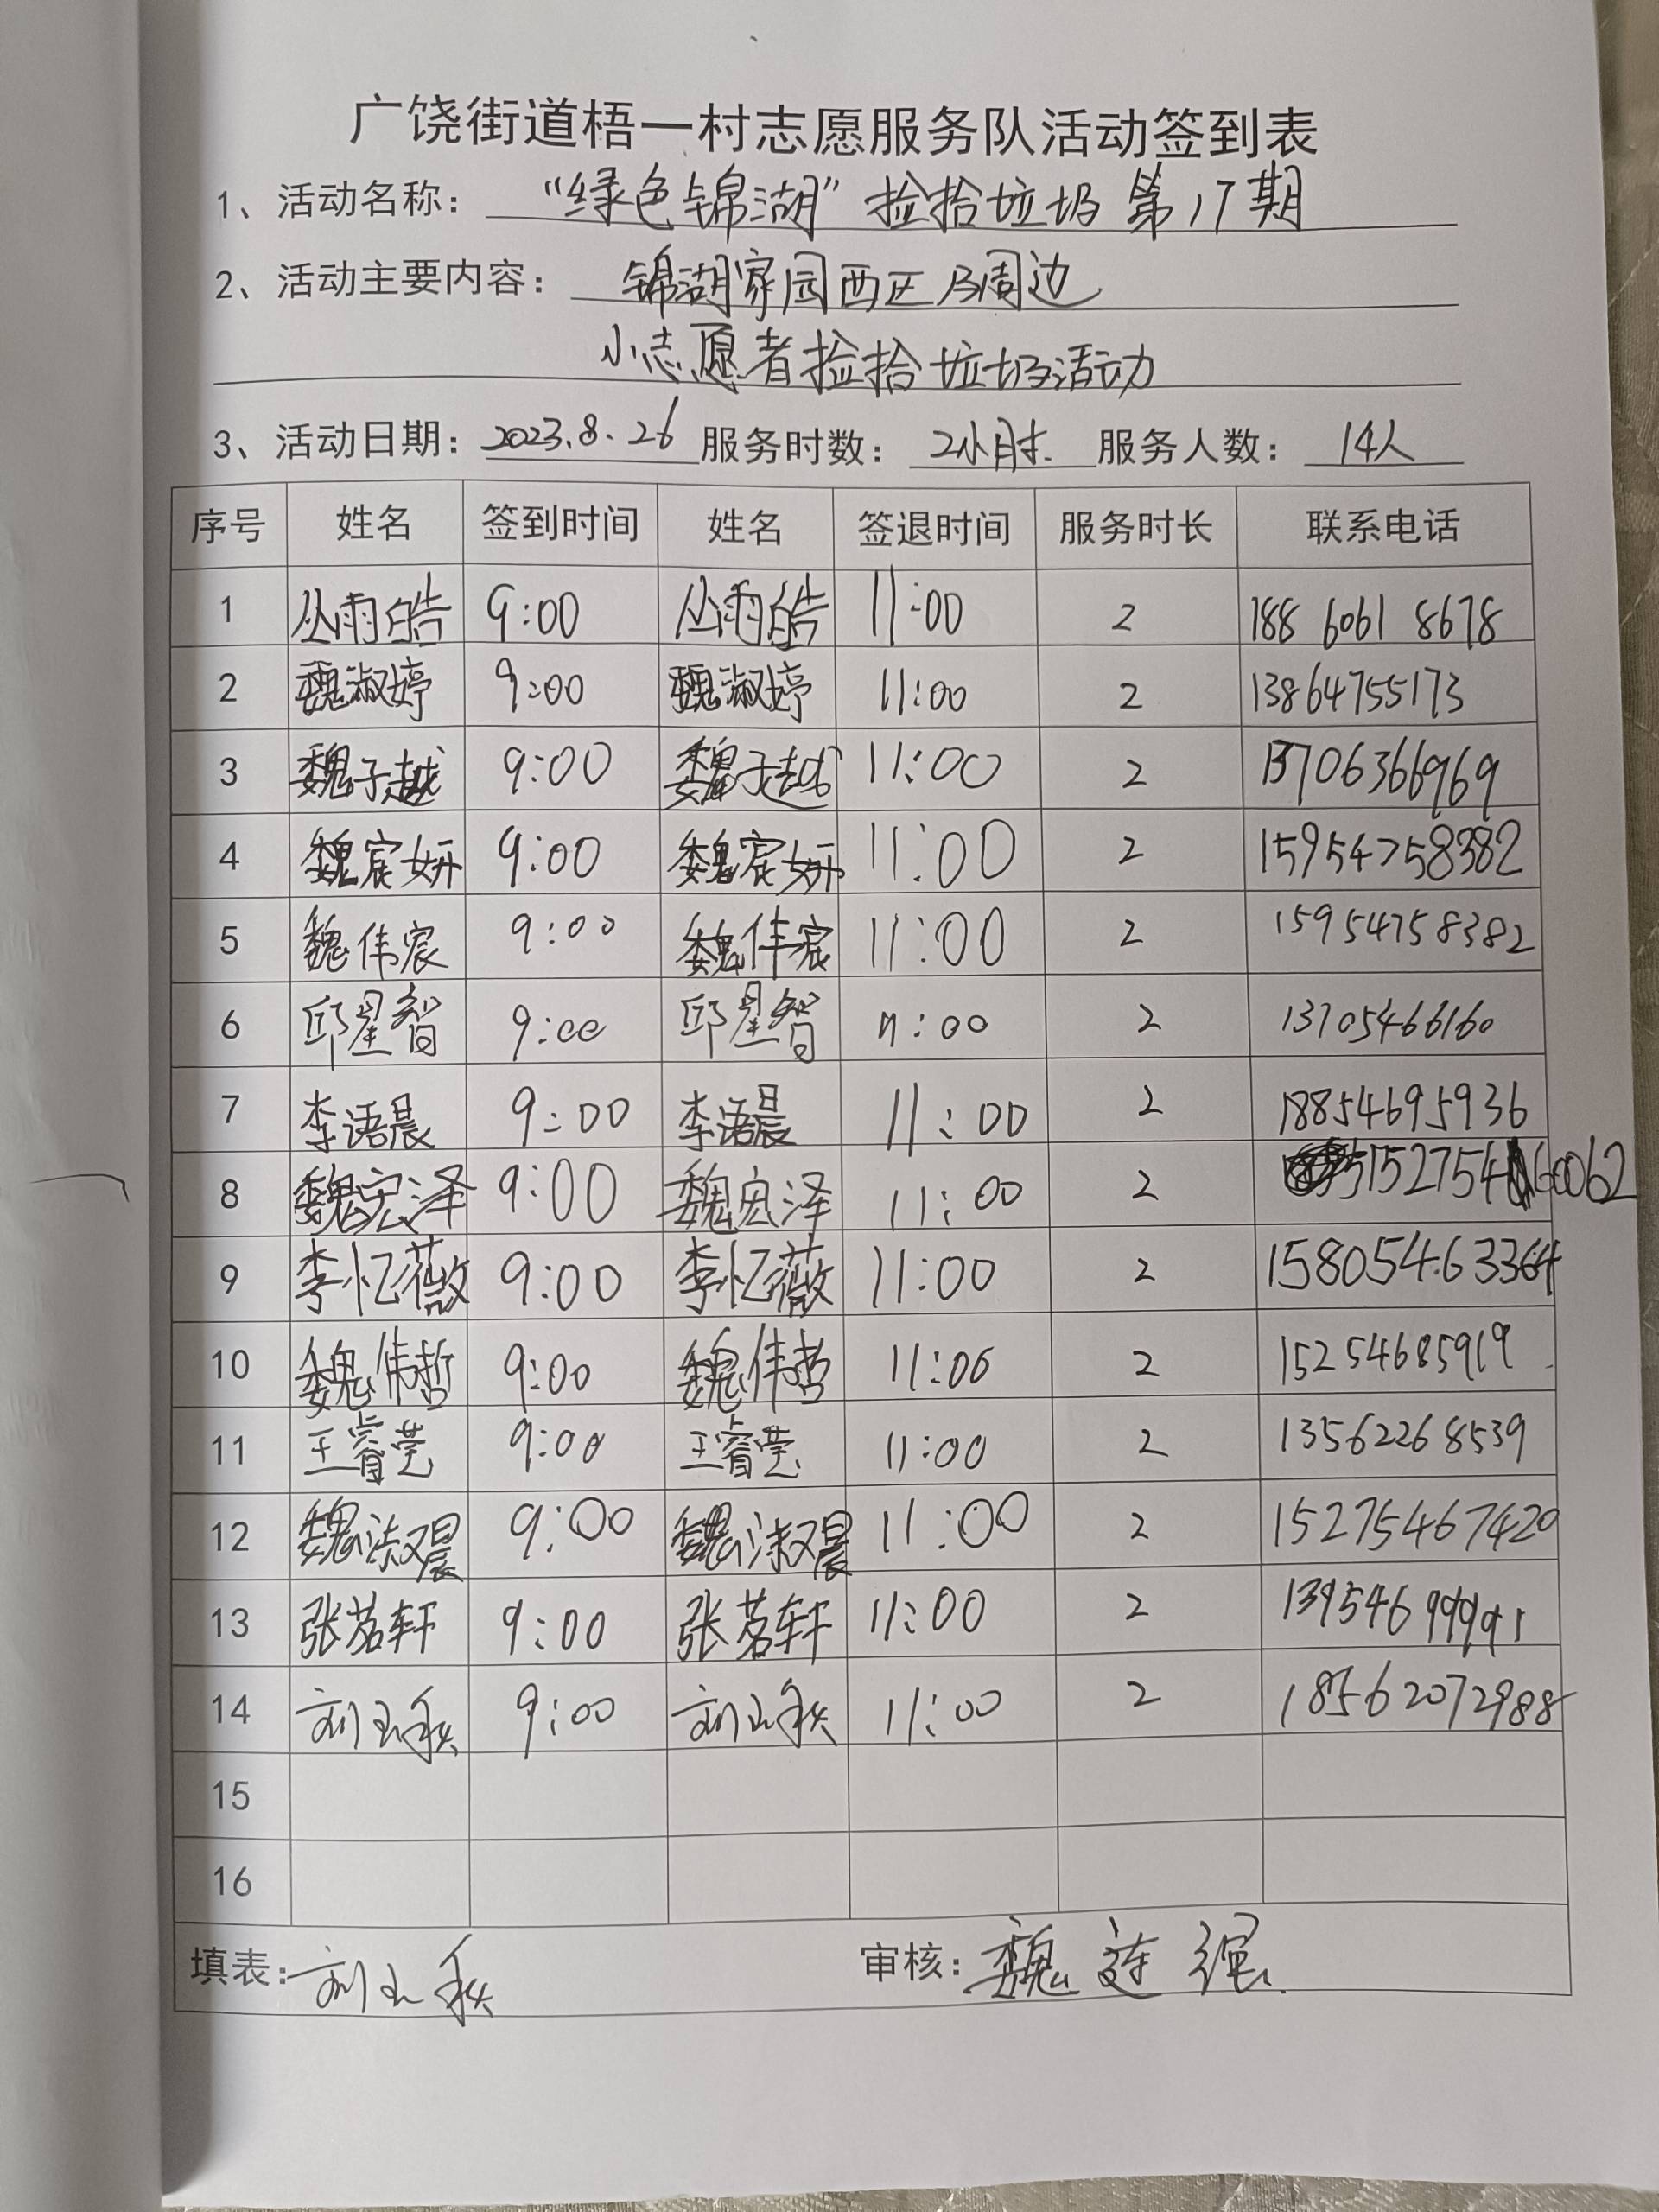 广饶街道梧一村志愿服务队活动签到表
1、活动名称： “绿色锦湖”捡拾垃圾第17期
2、活动主要内容： 锦湖家园西区及周边
小志愿者捡拾垃圾活动
3、活动日期： 2023.8.26 服务时数： 2小时. 服务人数： 14人
序号 姓名 签到时间 姓名 签退时间 服务时长 联系电话
1 丛雨皓 9:00 丛雨皓 11:00 2 188 6061 8678
2 魏淑婷 9:00 魏淑婷 11:00 2 13864755173
3 魏子越 9:00 魏子越 11:00 2 13706366969
4 魏宸妍 9:00 魏宸妍 11:00 2 15954758382
5 魏伟宸 9:00 魏伟宸 11:00 2 15954758382
6 邱星智 9:00 邱星智 11:00 2 13705466160
7 李语晨 9:00 李语晨 11:00 2 18854695936
8 魏宏泽 9:00 魏宏泽 11:00 2 15275460062
9 李忆薇 9:00 李忆薇 11:00 2 15805463364
10 魏伟哲 9:00 魏伟哲 11:00 2 15254685919
11 王睿莹 9:00 王睿莹 11:00 2 13562268539
12 魏淑晨 9:00 魏淑晨 11:00 2 15275467420
13 张茗轩 9:00 张茗轩 11:00 2 13954699991
14 刘玉秋 9:00 刘玉秋 11:00 2 18562072988
15
16
填表： 刘玉秋 审核： 魏连强